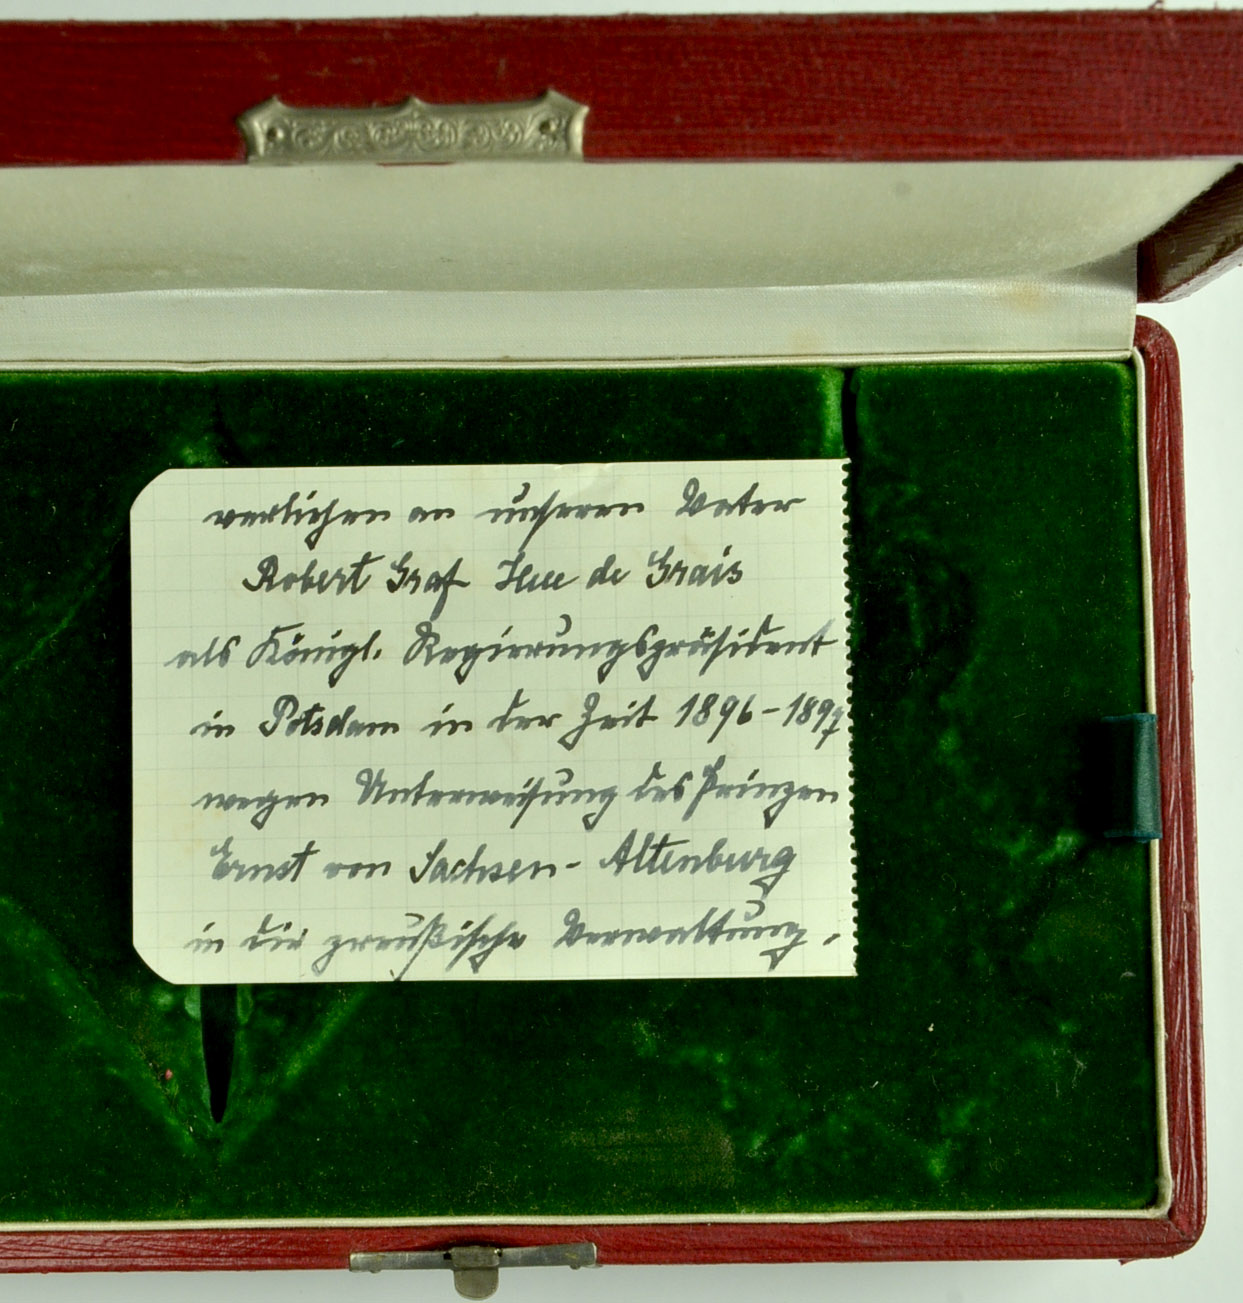 verliehen an unseren Vater
Robert Graf Hue de Grais
als Königl. Regierungspräsident
in Potsdam in der Zeit 1896-1897
wegen Unterweisung des Prinzen
Ernst von Sachsen-Altenburg
in die preußische Verwaltung.